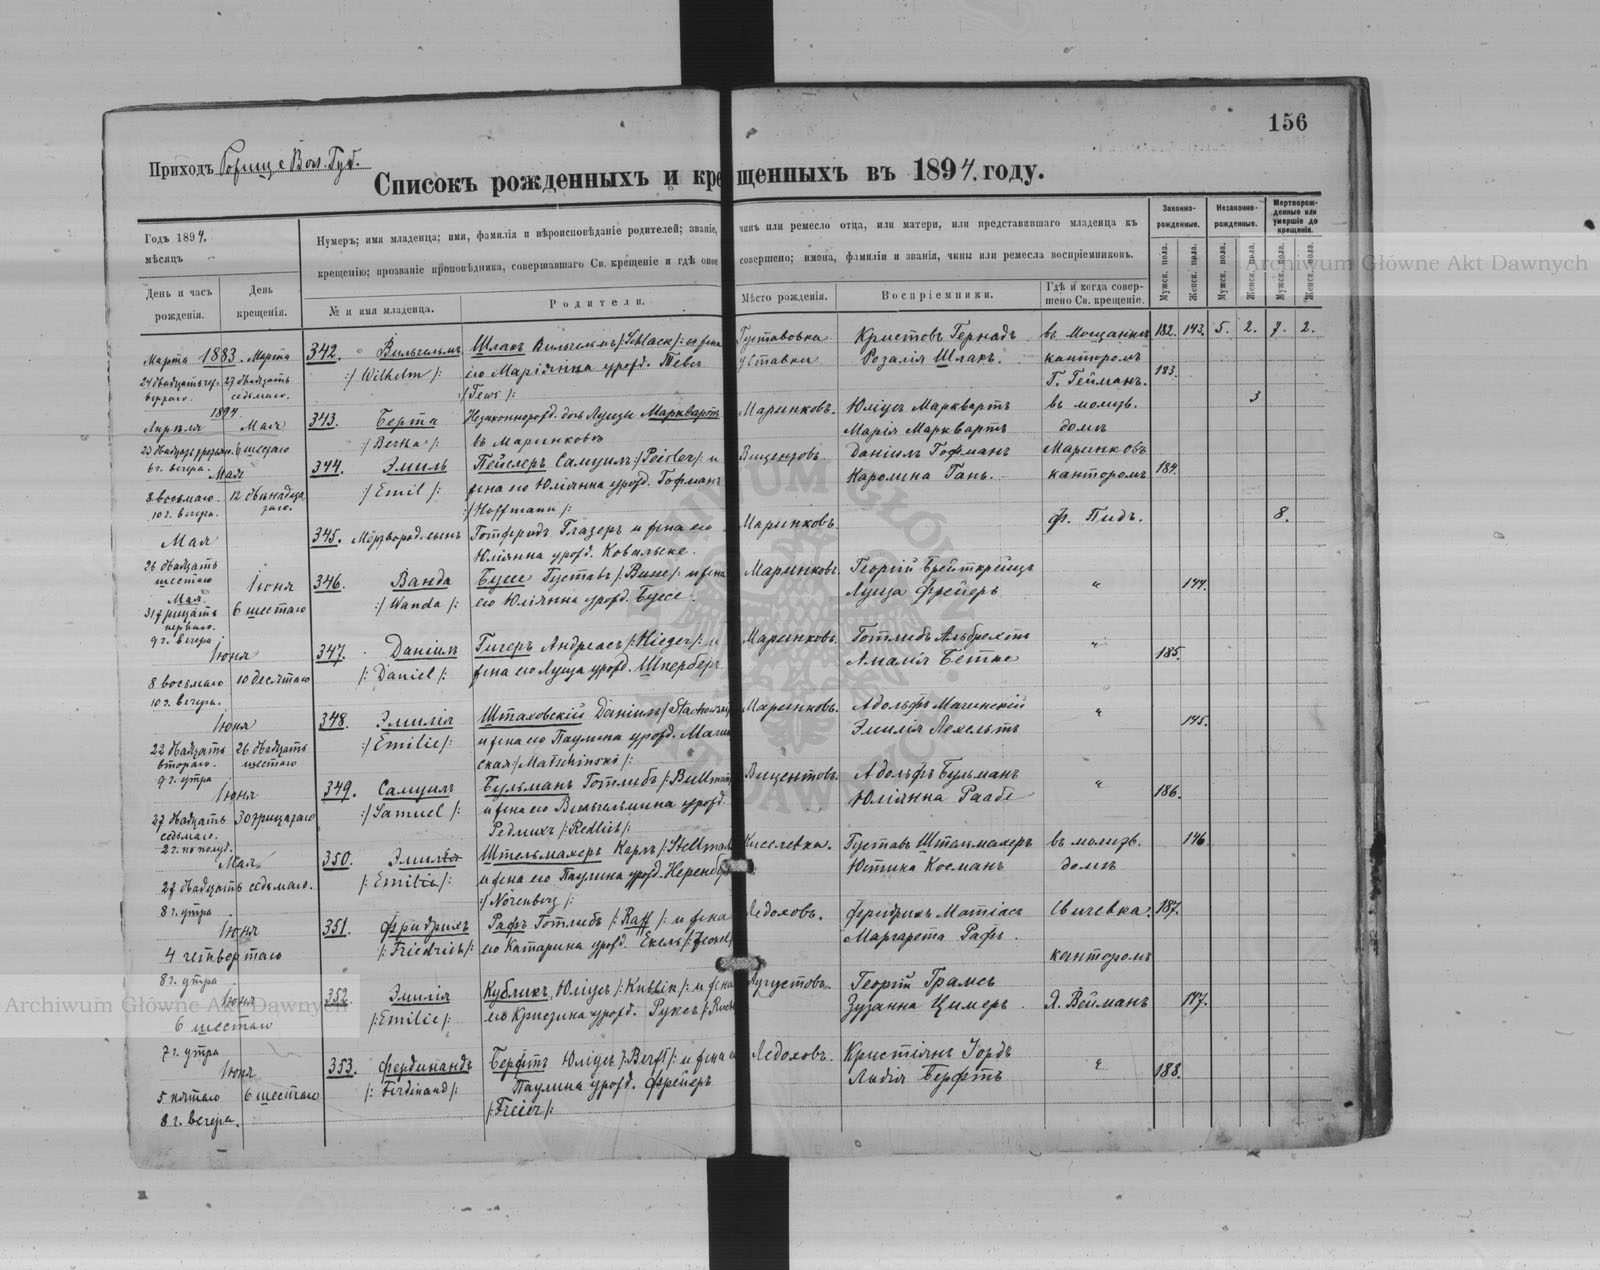 156
Приходъ Рожище Вол. Губ.
Списокъ рожденныхъ и крещенныхъ въ 1894. году.
Годъ 1894.
мѣсяцъ
Нумеръ; имя младенца; имя, фамилія и вѣроисповѣданіе родителей; званіе, чинъ или ремесло отца, или матери, или представившаго младенца къ
крещенію; прозваніе проповѣдника, совершавшаго Св. крещеніе и гдѣ оное совершено; имена, фамиліи и званія, чины или ремесла воспріемниковъ.
Законно-рожденные.
Незаконно-рожденные.
Мертворож-денные или умершіе до крещенія.
День и часъ рожденія.
День крещенія.
№ и имя младенца.
Родители.
Мѣсто рожденія.
Воспріемники.
Гдѣ и когда совер-шено Св. крещеніе.
Мужск. пола.
Женск. пола.
Мужск. пола.
Женск. пола.
Мужск. пола.
Женск. пола.
Марта 1883. Марта 342. Вильгельмъ Шлакъ Вильгельмъ /:Schlack:/ Густавовка Кристовъ въ 182. 143. 5. 2. 7. 2.
27 двадцать седьмаго. /: Wilhelm /: его Маріянна урожд. Тевсъ Розалія Шлакъ. канторомъ
/: Tews /: Г. Гейманъ. 183.
1894
Апрѣля Мая 343. Берта Незаконнорожд. дочь Луизы Марквартъ Маринковъ. Юліусъ Марквартъ въ молитв. 3
6 шестаго /: Berta /: въ Маринковѣ Марія Марквартъ домѣ
6 г. вечера.
Мая 344. Эмиль Пейслеръ Самуилъ /: Peisler /: и Даніилъ Гофманъ Маринковъ
8 восьмаго. 12 /: Emil /: жена его Юліянна урожд. Гофманъ Каролина Ганъ. канторомъ 184.
10 г. вечера. /: Hoffmann /:
Мая 345. сынъ Готфридъ Глазеръ и жена его Маринковъ. 8.
26 двадцать шестаго Юліянна урожд. Ковальске.
Іюня 346. Ванда Буссе Густавъ и жена Маринковъ. Георгій " 144.
Мая 31 тридцать перваго. 6 шестаго /: Wanda /: его Юліянна урожд. Буссе. Луиза Фрейеръ
9 г. вечера
Іюня 347. Даніилъ Гигеръ Андреасъ /: Hieger /: и Маринковъ. Готлибъ Альбрехтъ " 185.
8 восьмаго 10 десятаго /: Daniel /: жена его Луиза урожд. Амалія Бетке
10 г. вечера.
Іюня 348. Эмилія Штаховскій Даніилъ Маринковъ. Адольфъ Мачинскій " 145.
22 двадцать втораго. 26 двадцать шестаго /: Emilie /: и жена его Паулина урожд. Мачин Эмилія
9 г. утра ская /: Matschinski /:
Іюня 349. Самуилъ Бульманъ Готлибъ Вицентовъ. Адольфъ Бульманъ " 186.
27 двадцать седьмаго. 30 /: Samuel /: и жена его Вильгельмина урожд. Юліянна Раабе
2 г. по полуд. Редлихъ /: Redlich /:
Мая 350. Штельмахеръ Карлъ Киселевка. Густавъ Штельмахеръ въ молитв. 146.
27 двадцать седьмаго. и жена его Паулина урожд. Юстина Косманъ домѣ
8 г. утра /: Nörenberg /:
Іюня 351. Фридрихъ Рафъ Готлибъ /: Raff /: и жена Ледоховъ. Фридрихъ Матіасъ 187.
4 четвертаго /: Friedrich /: его Катарина урожд. Екель Маргарета Рафъ.
канторомъ
8 г. утра
Іюня 352. Эмилія Кубликъ, Юліусъ /: Kublik /: и жена Августовъ. Георгій Грамсъ
6 шестаго /: Emilie /: его Зузанна Цимеръ Я. Вейманъ 147.
7 г. утра
Іюня 353. Фердинандъ Берфтъ Юліусъ /: Berft /: и жена Ледоховъ. Кристіянъ Іордъ "
5 пятаго 6 шестаго /: Ferdinand /: Паулина урожд. Фрейеръ Лидія Берфтъ 188.
8 г. вечера. /: Freier /:
Archiwum Główne Akt Dawnych
Archiwum Główne Akt Dawnych